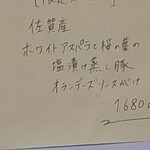 佐賀産
ホワイトアスパラと桜の葉の
塩漬け蒸し豚
オランデーズソースがけ
1,680円